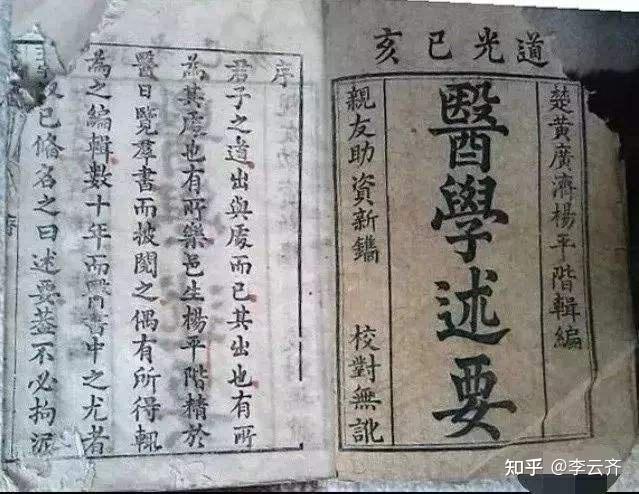 道光已亥
楚黃廣濟楊平階輯編
醫學述要
親友助資新鐫 校對無訛
序
君子之道出與處而已其出也有所
為其處也有所樂邑生楊平階精於
醫日覽羣書而披閱之偶有所得輒
為之編輯數十年而醫書中之尤者
已脩名之曰述要葢不必拘泥
知乎 @李云齐